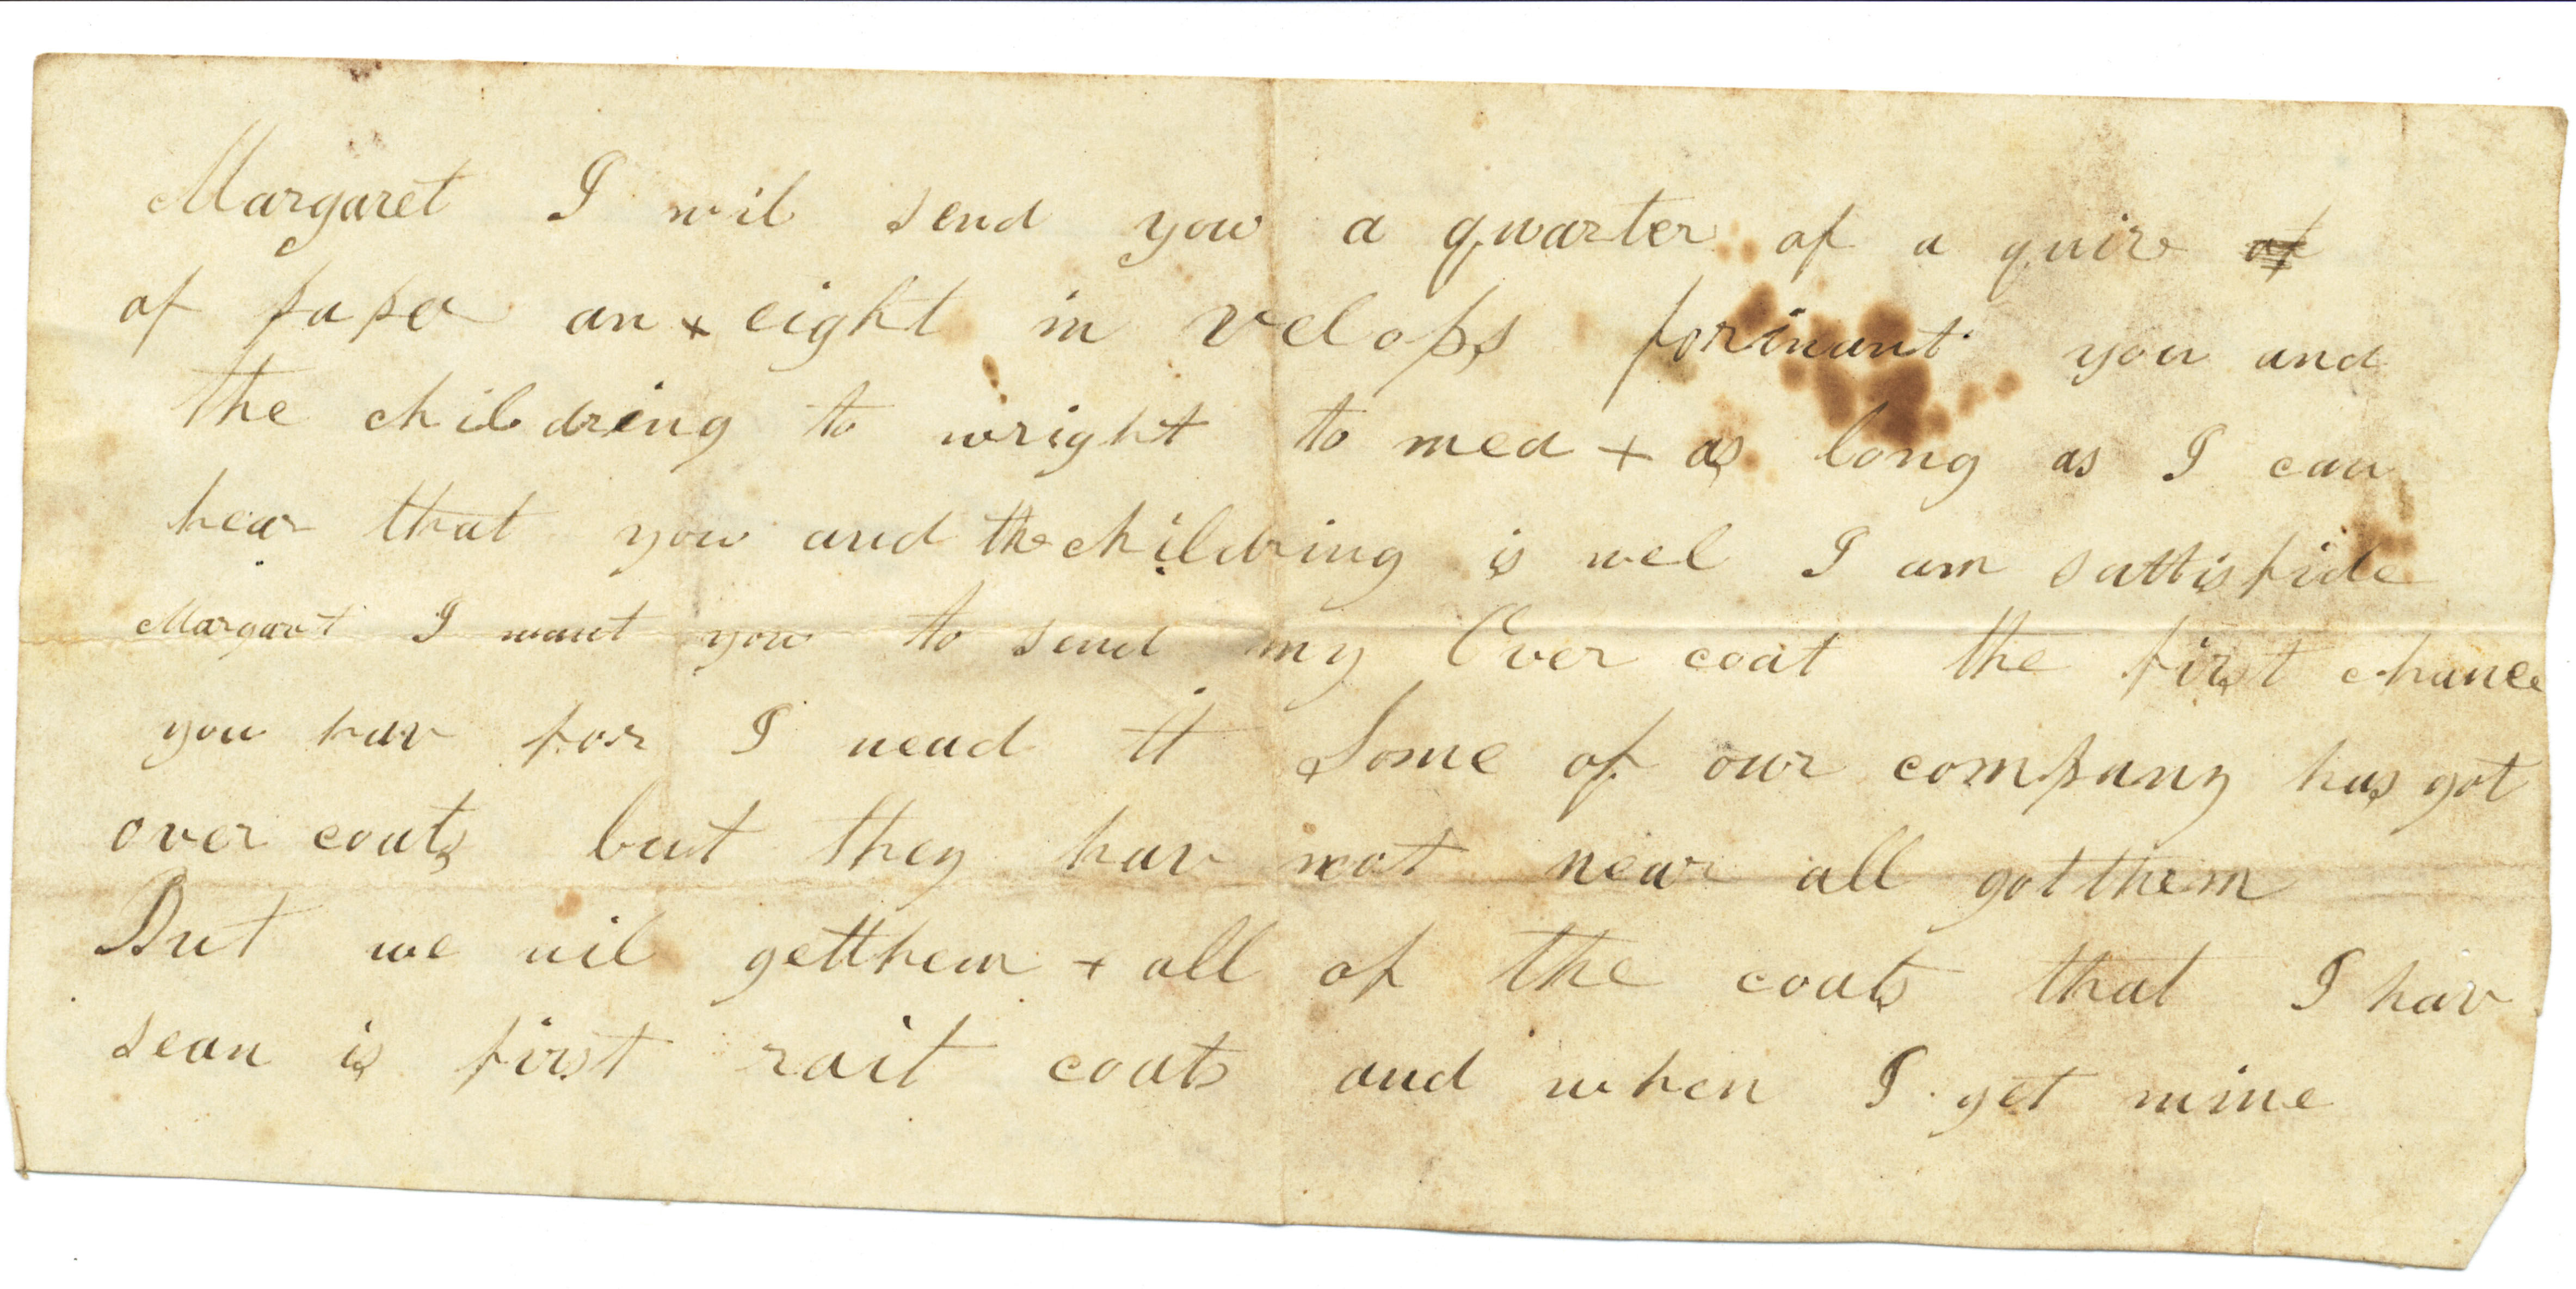 Margaret I wil send you a quarter of a quire of
of paper an + eight in velops for i want you and
the childring to wright to mea + as long as I can
hear that you and the childring is wel I am sattisfide
Margart I want you to send my Over coat the first chance
you hav for I nead it Some of our company has got
over coats but they hav not near all got them
But we wil getthem + all of the coats that I hav
sean is first rait coats and when I get mine